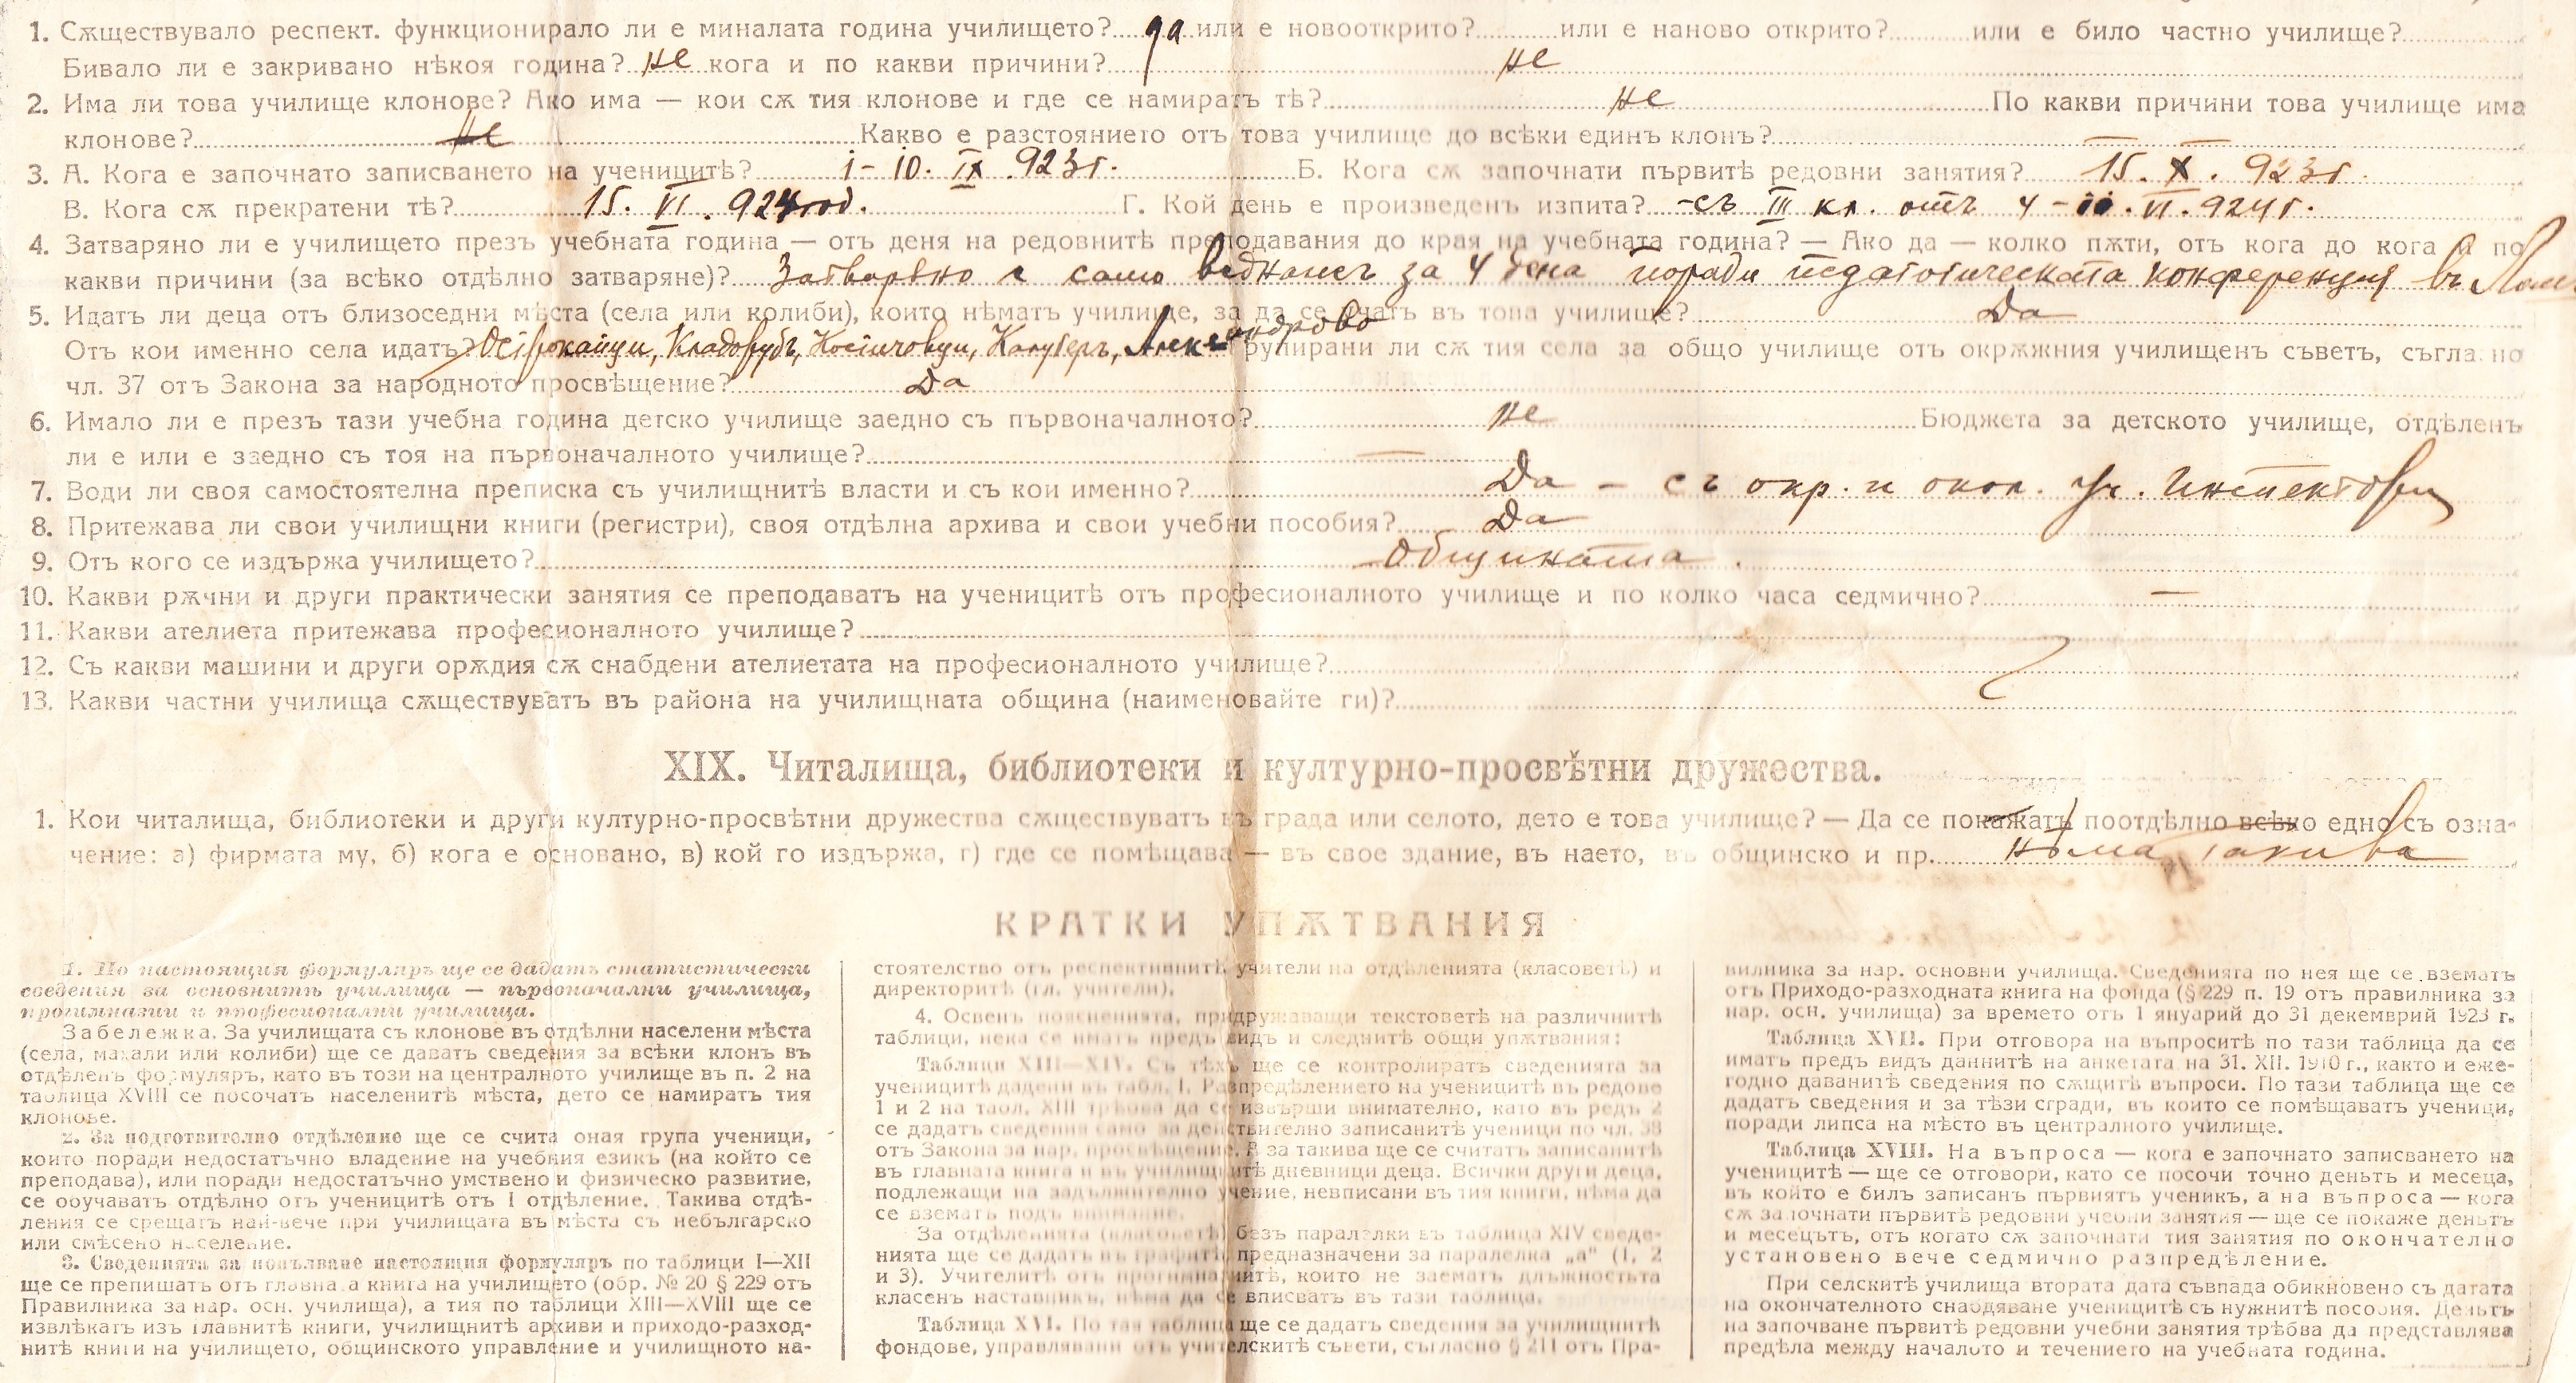 1. Сѫществувало респект. функционирало ли е миналата година училището? да или е новооткрито? или е наново открито? или е било частно училище?
Бивало ли е закривано нѣкоя година? не кога и по какви причини? не
2. Има ли това училище клонове? Ако има — кои сѫ тия клонове и где се намиратъ тѣ? не По какви причини това училище има
клонове? не Какво е разстоянието отъ това училище до всѣки единъ клонъ? — —
3. А. Кога е започнато записването на ученицитѣ? 1 – 10. IX. 923 г. Б. Кога сѫ започнати първитѣ редовни занятия? 15. X. 923 г.
В. Кога сѫ прекратени тѣ? 15. VI. 924 год. Г. Кой день е произведенъ изпита? – съ III кл. отъ 4 – 11. VI. 924 г.
4. Затваряно ли е училището презъ учебната година — отъ деня на редовнитѣ преподавания до края на учебната година? — Ако да — колко пѫти, отъ кога до кога и по
какви причини (за всѣко отдѣлно затваряне)? Затваряно е само веднажъ за 4 дена поради педагогическата конференция въ Ломъ
5. Идатъ ли деца отъ близоседни мѣста (села или колиби), които нѣматъ училище, за да се учатъ въ това училище? Да
Отъ кои именно села идатъ? Острокапци, Кладорубъ, Костичовци, Калугеръ, Александрово Групирани ли сѫ тия села за общо училище отъ окрѫжния училищенъ съветъ, съгласно
чл. 37 отъ Закона за народното просвѣщение? Да
6. Имало ли е презъ тази учебна година детско училище заедно съ първоначалното? не Бюджета за детското училище, отдѣленъ
ли е или е заедно съ тоя на първоначалното училище? —
7. Води ли своя самостоятелна преписка съ училищнитѣ власти и съ кои именно? Да – съ окр. и окол. уч. инспектори
8. Притежава ли свои училищни книги (регистри), своя отдѣлна архива и свои учебни пособия? Да
9. Отъ кого се издържа училището? Общината.
10. Какви рѫчни и други практически занятия се преподаватъ на ученицитѣ отъ професионалното училище и по колко часа седмично? —
11. Какви ателиета притежава професионалното училище?
12. Съ какви машини и други орѫдия сѫ снабдени ателиетата на професионалното училище?
13. Какви частни училища сѫществуватъ въ района на училищната община (наименовайте ги)?
XIX. Читалища, библиотеки и културно-просвѣтни дружества.
1. Кои читалища, библиотеки и други културно-просвѣтни дружества сѫществуватъ въ града или селото, дето е това училище? — Да се покажатъ поотдѣлно всѣко едно съ озна-
чение: а) фирмата му, б) кога е основано, в) кой го издържа, г) где се помѣщава — въ свое здание, въ наето, въ общинско и пр. Нѣма такива
КРАТКИ УПѪТВАНИЯ
1. По настоящия формуляръ ще се дадатъ статистически
сведения за основнитѣ училища — първоначални училища,
прогимназии и професионални училища.
Забележка. За училищата съ клонове въ отдѣлни населени мѣста
(села, махали или колиби) ще се даватъ сведения за всѣки клонъ въ
отдѣленъ формуляръ, като въ този на централното училище въ п. 2 на
таблица XVIII се посочатъ населенитѣ мѣста, дето се намиратъ тия
клонове.
2. За подготвително отдѣление ще се счита оная група ученици,
които поради недостатъчно владение на учебния езикъ (на който се
преподава), или поради недостатъчно умствено и физическо развитие,
се обучаватъ отдѣлно отъ ученицитѣ отъ I отдѣление. Такива отдѣ-
ления се срещатъ най-вече при училищата въ мѣста съ небългарско
или смѣсено население.
3. Сведенията за попълване настоящия формуляръ по таблици I—XII
ще се препишатъ отъ главната книга на училището (обр. № 20 § 229 отъ
Правилника за нар. осн. училища), а тия по таблици XIII—XVIII ще се
извлѣкатъ изъ главнитѣ книги, училищнитѣ архиви и приходо-разход-
нитѣ книги на училището, общинското управление и училищното на-
стоятелство отъ респективнитѣ учители на отдѣленията (класоветѣ) и
директоритѣ (гл. учители).
4. Освенъ поясненията, придружаващи текстоветѣ на различнитѣ
таблици, нека се иматъ предъ видъ и следнитѣ общи упѫтвания:
Таблици XIII—XIV. Съ тѣхъ ще се контролиратъ сведенията за
ученицитѣ дадени въ табл. I. Разпредѣлението на ученицитѣ въ редове
1 и 2 на табл. XIII трѣбва да се извърши внимателно, като въ редъ 2
се дадатъ сведения само за действително записанитѣ ученици по чл. 33
отъ Закона за нар. просвѣщение. А за такива ще се считатъ записанитѣ
въ главната книга и въ училищнитѣ дневници деца. Всички други деца,
подлежащи на задължително учение, невписани въ тия книги, нѣма да
се взематъ подъ внимание.
За отдѣленията (класоветѣ) безъ паралелки въ таблица XIV сведе-
нията ще се дадатъ въ графитѣ предназначени за паралелка „а“ (1, 2
и 3). Учителитѣ отъ прогимназиитѣ, които не заематъ длъжностьта
класенъ наставникъ, нѣма да се вписватъ въ тази таблица.
Таблица XVI. По тая таблица ще се дадатъ сведения за училищнитѣ
фондове, управлявани отъ учителскитѣ съвети, съгласно § 211 отъ Пра-
вилника за нар. основни училища. Сведенията по нея ще се взематъ
отъ Приходо-разходната книга на фонда (§ 229 п. 19 отъ правилника за
нар. осн. училища) за времето отъ 1 януарий до 31 декемврий 1923 г.
Таблица XVII. При отговора на въпроситѣ по тази таблица да се
иматъ предъ видъ даннитѣ на анкетата на 31. XII. 1910 г., както и еже-
годно даванитѣ сведения по сѫщитѣ въпроси. По тази таблица ще се
дадатъ сведения и за тѣзи сгради, въ които се помѣщаватъ ученици,
поради липса на мѣсто въ централното училище.
Таблица XVIII. На въпроса — кога е започнато записването на
ученицитѣ — ще се отговори, като се посочи точно деньтъ и месеца,
въ който е билъ записанъ първиятъ ученикъ, а на въпроса — кога
сѫ започнати първитѣ редовни учебни занятия — ще се покаже деньтъ
и месецътъ, отъ когато сѫ започнати тия занятия по окончателно
установено вече седмично разпредѣление.
При селскитѣ училища втората дата съвпада обикновено съ датата
на окончателното снабдяване ученицитѣ съ нужнитѣ пособия. Деньтъ
на започване първитѣ редовни учебни занятия трѣбва да представлява
предѣла между началото и течението на учебната година.